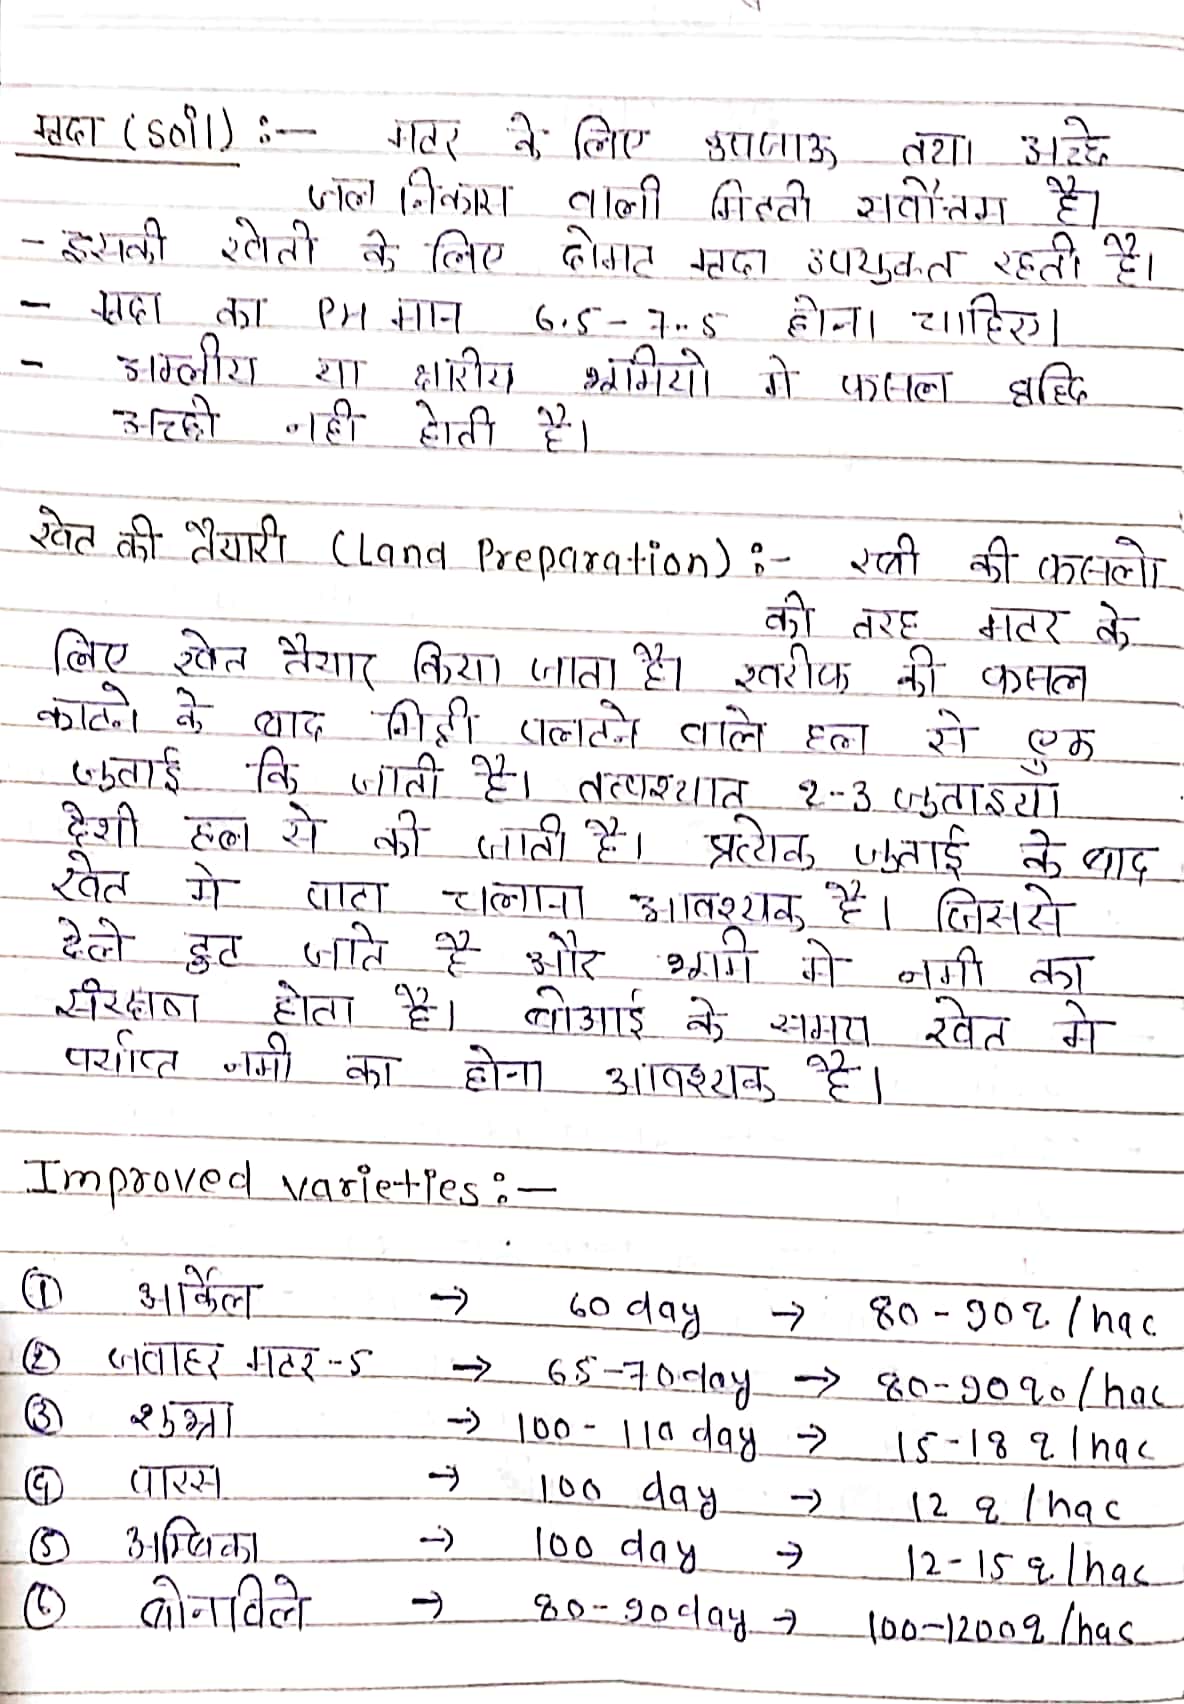 मृदा (Soil) :— मटर के लिए उपजाऊ तथा अच्छे
जल निकास वाली मिट्टी सर्वोत्तम है।
- इसकी खेती के लिए दोमट मृदा उपयुक्त रहती है।
- मृदा का PH मान 6.5-7.5 होना चाहिए।
- अम्लीय या क्षारीय भूमियो मे फसल बृद्धि
अच्छी नही होती है।
खेत की तैयारी (Land Preparation) :- रबी की फसलो
की तरह मटर के
लिए खेत तैयार किया जाता है। खरीफ की फसल
काटने के बाद मिट्टी पलटने वाले हल से एक
जुताई कि जाती है। तत्पश्यात 2-3 जुताइया
देशी हल से की जाती है। प्रत्येक जुताई के बाद
खेत मे पाटा चलाना आवश्यक है। जिससे
ढेले टुट जाते है और भूमि मे नमी का
संरक्षण होता है। बोआई के समय खेत मे
पर्याप्त नमी का होना आवश्यक है।
Improved varieties :—
① आर्केल → 60 day → 80-90q/hac
② जवाहर मटर-5 → 65-70day → 80-90q०/hac
③ शुभ्रा → 100-110 day → 15-18 q/hac
④ पारस → 100 day → 12 q/hac
⑤ अम्बिका → 100 day → 12-15q/hac
⑥ बोनाविले → 80-90day → 100-120०q/hac